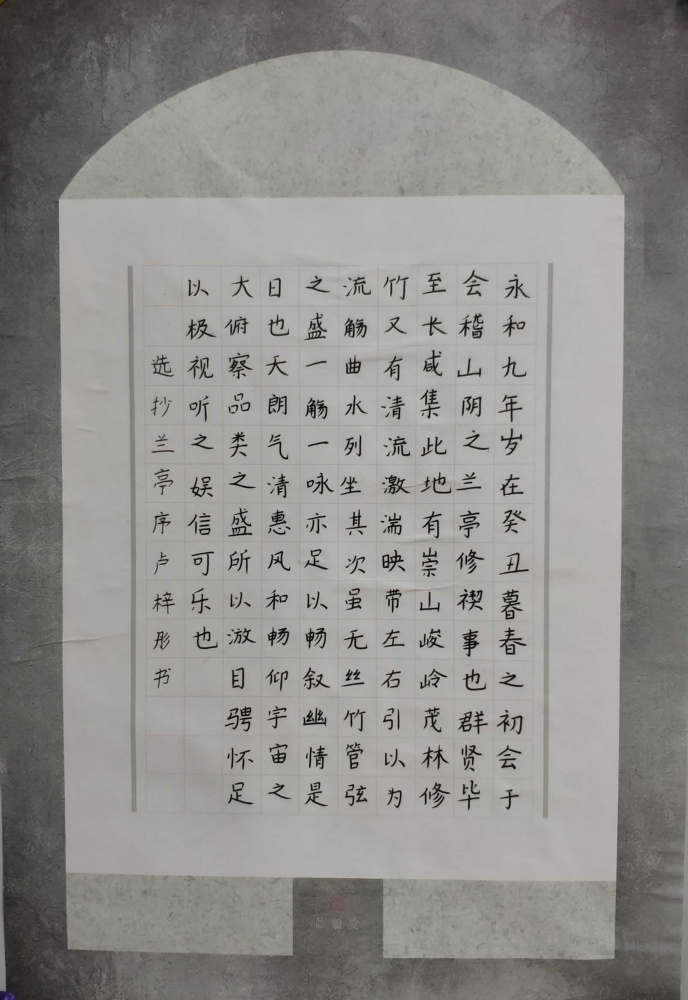 永和九年岁在癸丑暮春之初会于
会稽山阴之兰亭修禊事也群贤毕
至长咸集此地有崇山峻岭茂林修
竹又有清流激湍映带左右引以为
流觞曲水列坐其次虽无丝竹管弦
之盛一觞一咏亦足以畅叙幽情是
日也天朗气清惠风和畅仰宇宙之
大俯察品类之盛所以游目骋怀足
以极视听之娱信可乐也
选抄兰亭序卢梓彤书